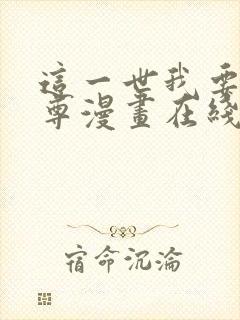 這一世我要
尊漫畫在綫
宿命沉淪